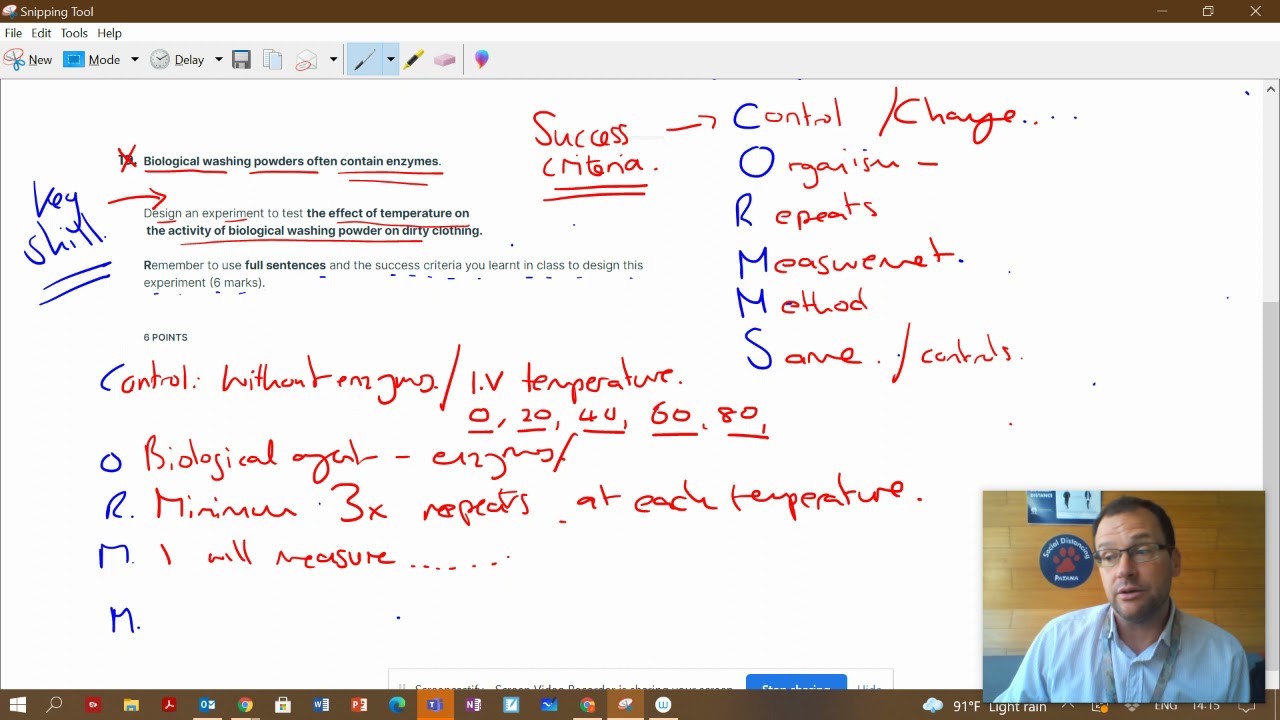 Snipping Tool
File Edit Tools Help
New Mode Delay
Success criteria.
Control / Change....
Orgaiism –
Repeats
Measuremet.
Method
Same. / controls.
Key skill.
19. Biological washing powders often contain enzymes.
Design an experiment to test the effect of temperature on
the activity of biological washing powder on dirty clothing.
Remember to use full sentences and the success criteria you learnt in class to design this
experiment (6 marks).
6 POINTS
Control: Without enzyms. / I.V temperature.
0, 20, 40, 60, 80,
O Biological agent – enzyms/
R. Minimum 3x repeats at each temperature.
M. I will measure ......
M.
Social Distancing
PATANA
DISTANCE
Screencastify - Screen Video Recorder is sharing your screen.
Stop sharing
Hide
91°F Light rain
ENG
14:15